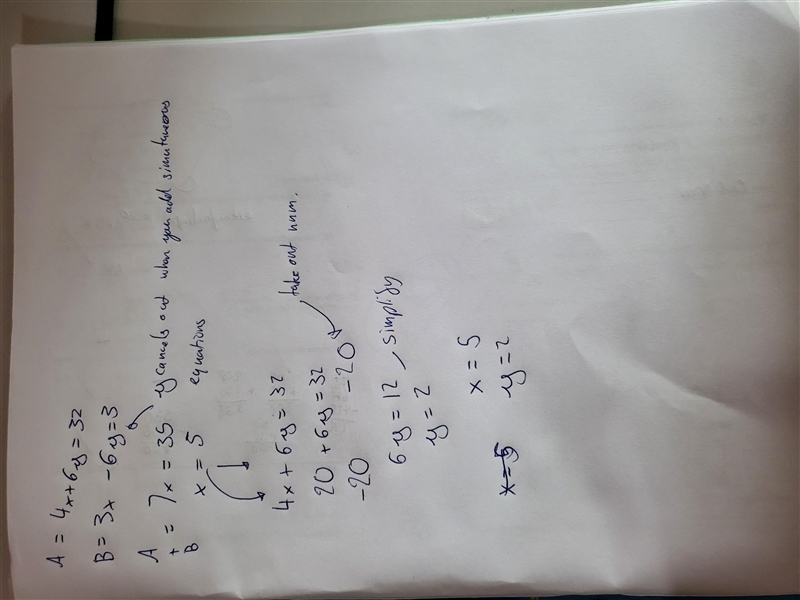 A = 4x+6y = 32
B = 3x -6y = 3
A + B = 7x = 35 y cancels out when you add simutaneous
x = 5 equations
4x + 6y = 32
20 + 6y = 32 take out num.
-20 -20
6y = 12 simplify
y = 2
x = 5 x = 5
y = 2